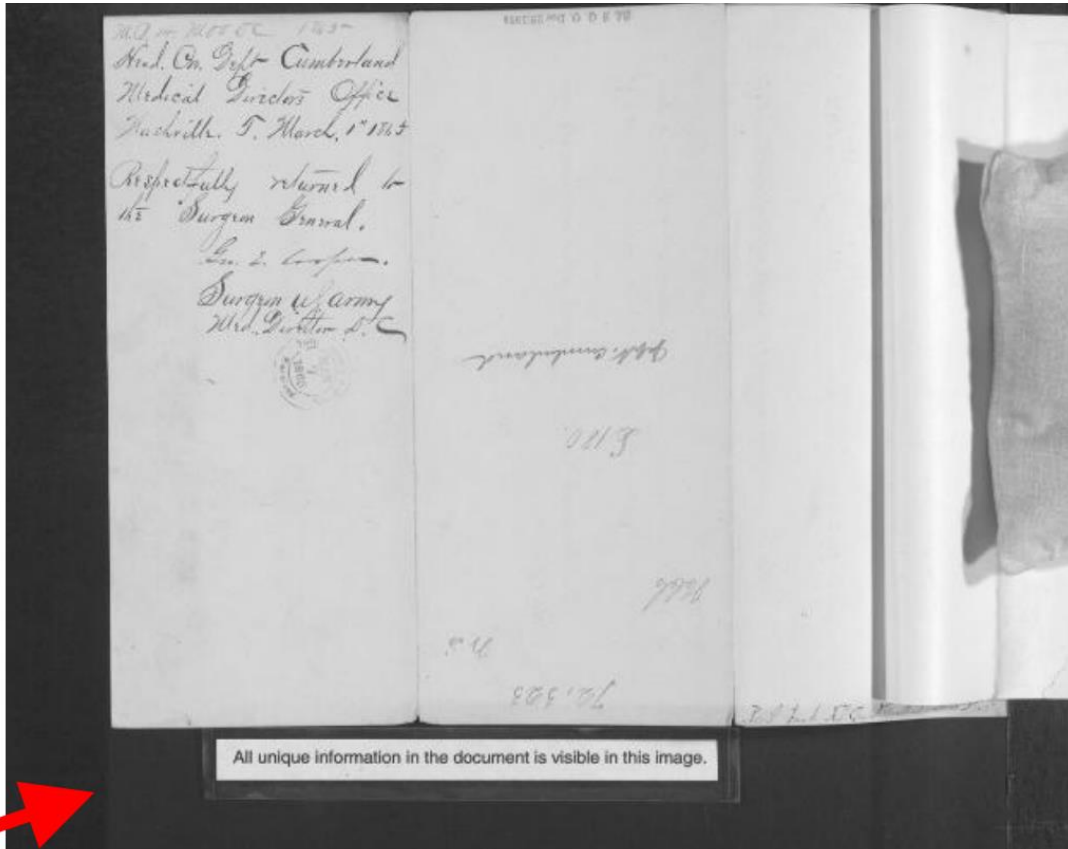 Head. Qrs. Dept Cumberland
Medical Directors Office
Nashville. T. March, 1st 1865
Respectfully returned to
the Surgeon General.
Geo. E. Cooper.
Surgeon US Army
Med. Director D. C
Dept. Cumberland
E 120.
N.S.
72,523
All unique information in the document is visible in this image.